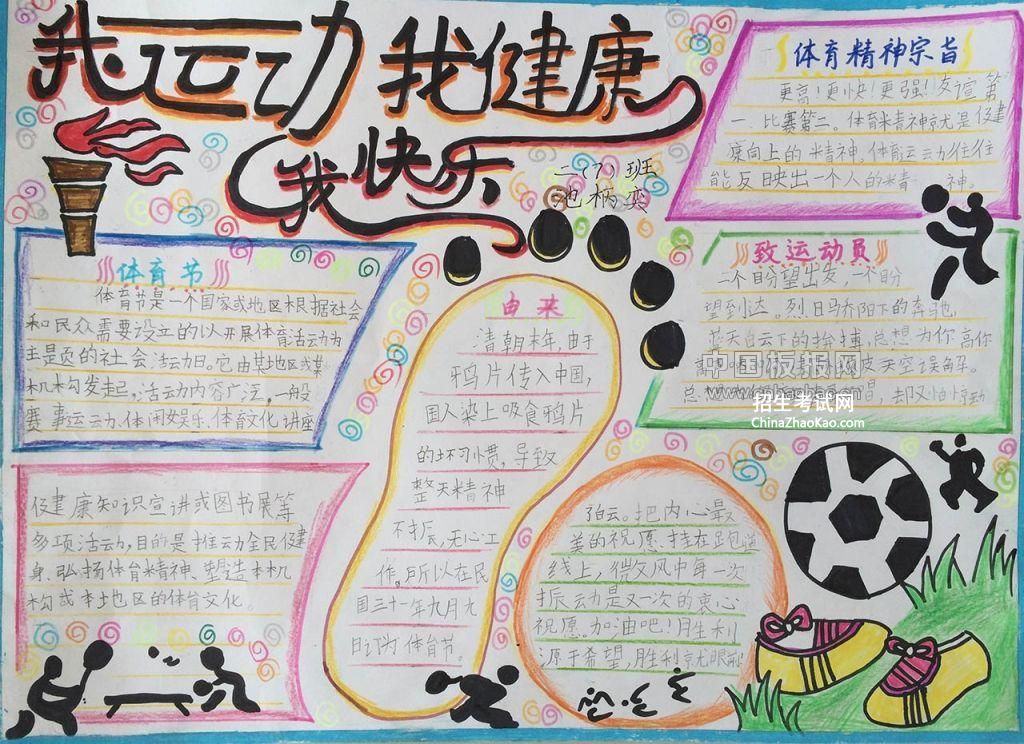 我运动 我健康
我快乐
二(7)班
体育节
体育节是一个国家或地区根据社会
和民众需要设立的以开展体育活动为
主是页的社会活动日。它由某地区或某
机构发起,活动内容广泛,一般
赛事运动、体闲娱乐、体育文化讲座
健康知识宣讲或图书展等
多项活动,目的是推动全民健
身、弘扬体育精神、塑造本机
构或本地区的体育文化。
由来
清朝末年,由于
鸦片传入中国,
国人染上吸食鸦片
的坏习惯,导致
整天精神
不振,无心工
作。所以在民
国三十一年九月九
日订为体育节。
体育精神宗旨
更高!更快!更强!友谊第
一、比赛第二。体育精神就是健
康向上的精神,体育运动往往
能反映出一个人的精 神。
致运动员
一个自份望出发,一个自份
望到达。烈日骄阳下的奔驰
蓝天白云下的拚搏,总想为你高
天空误解。
总 唱,却又怕惊动
中国板报网
招生考试网
ChinaZhaoKao.com
白云。把内心最
美的祝愿,挂在跑道
线上,微风中每一次
振动是又一次的衷心
祝愿。加油吧!胜利
源于希望,胜利就眼前